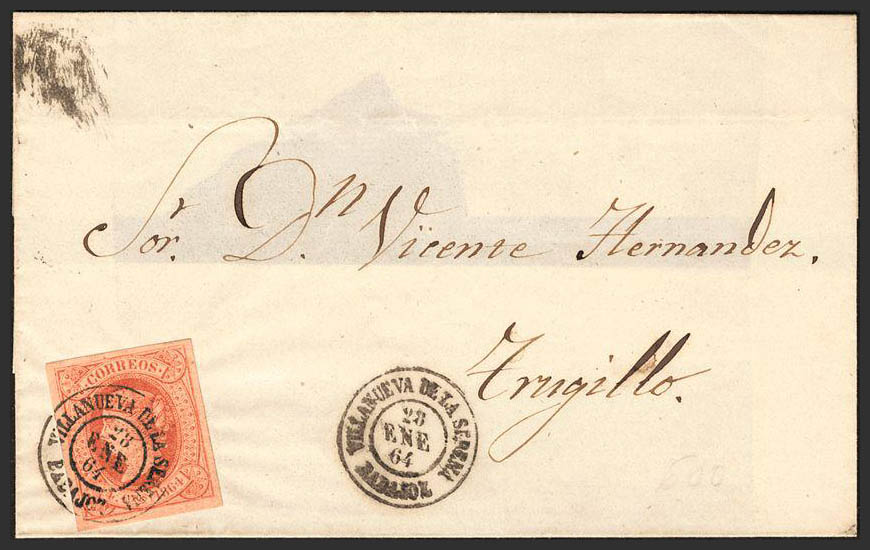 Sor. Dn Vicente Hernandez.
Trugillo.
CORREOS.
1864
VILLANUEVA DE LA SERENA
28
ENE
64
BADAJOZ
VILLANUEVA DE LA SERENA
28
ENE
64
BADAJOZ
500